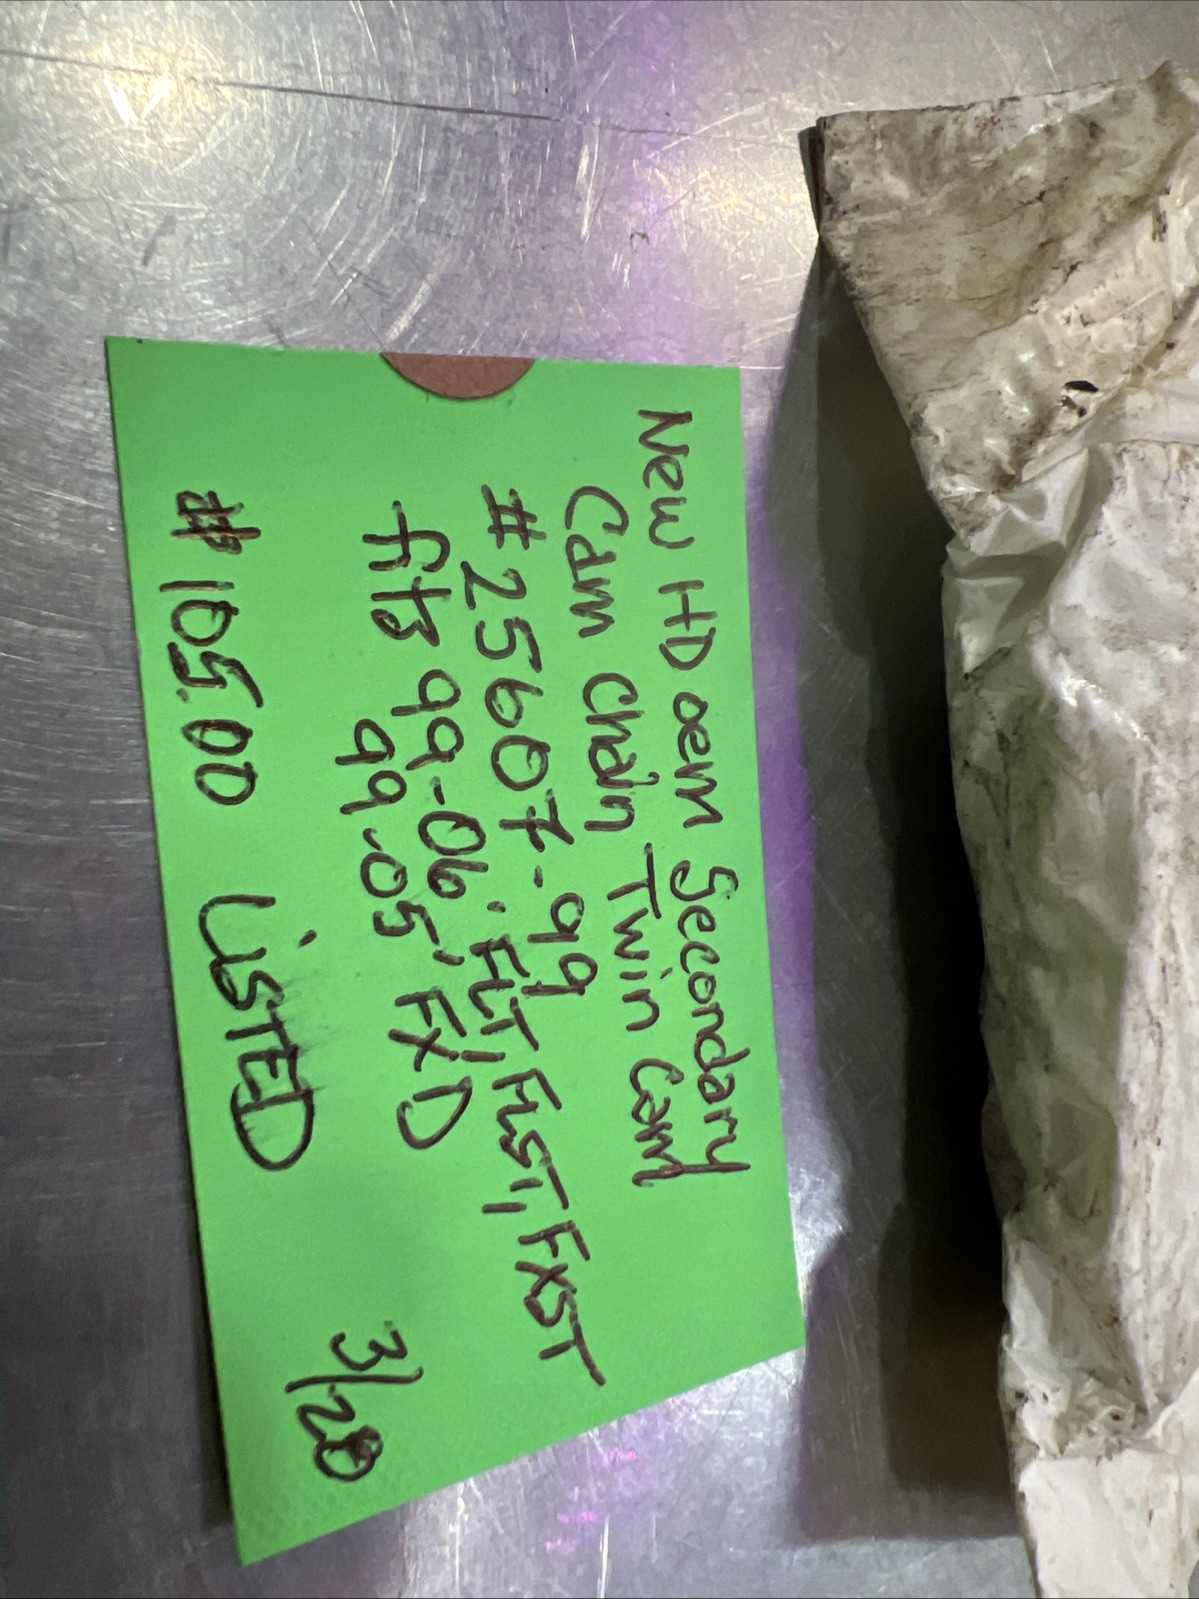 New HD oem Secondary
Cam chain Twin Cam
#25607-99
fits 99-06' FLT, FLST, FXST
99-05' FXD
#105.00 LISTED 3/20